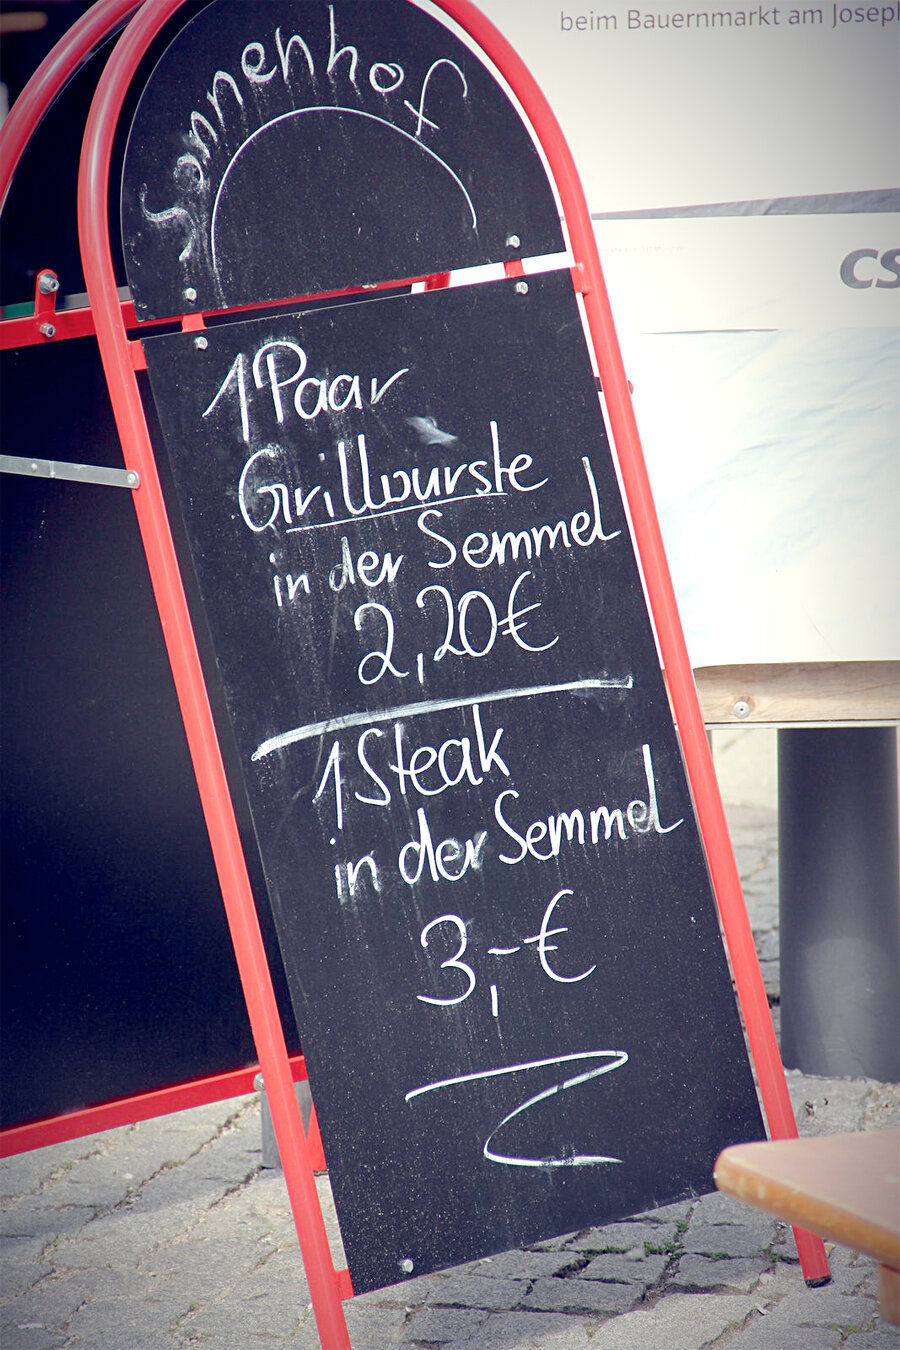 beim Bauernmarkt am Joseph
CS
Sonnenhof
1 Paar
Grillwurste
in der Semmel
2,20€
1 Steak
in der Semmel
3,-€